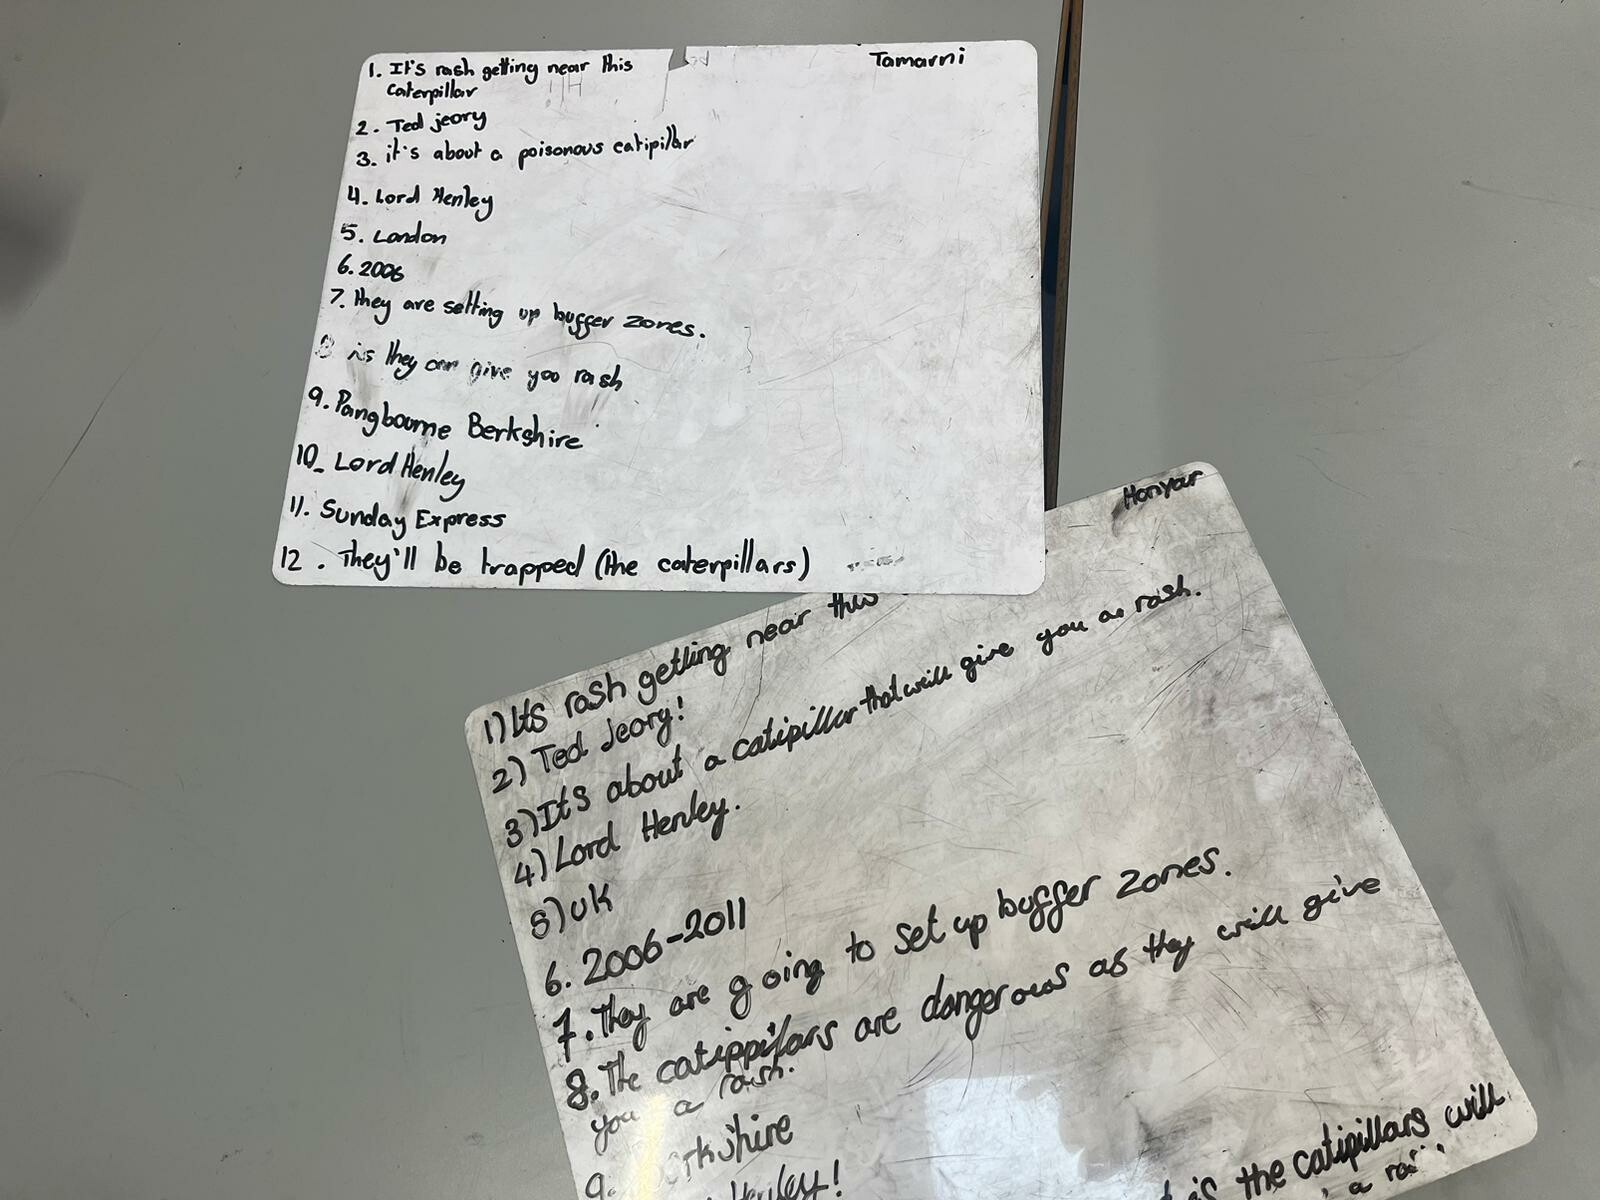 Tamarni
1. It's rash getting near this
caterpillar
2. Ted jeory
3. it's about a poisonous catipillar
4. Lord Henley
5. London
6. 2006
7. they are setting up buffer zones.
8 is they can give you rash
9. Pangbourne Berkshire
10_ Lord Henley
11. Sunday Express
12. They'll be trapped (the caterpillars)
Honyar
1) Its rash getting near this
2) Ted Jeory!
3) It's about a catipillar that will give you a rash.
4) Lord Henley.
5) UK
6. 2006-2011
7. They are going to set up buffer zones.
8. The catippilars are dangerous as they will give
you a rash.
9.
Henley!
is the catipillars will
a